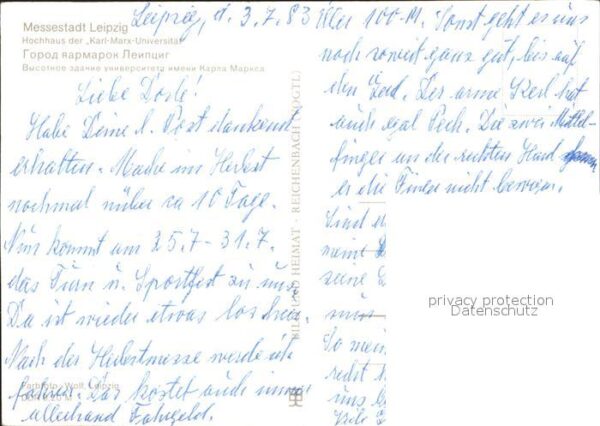 Messestadt Leipzig
Hochhaus der „Karl-Marx-Universität"
Город ярмарок Лейпциг
Высотное здание университета имени Карла Маркса
Leipzig, d. 3.7.83
Liebe Dorle!
Habe Deine l. Post dankend
erhalten. Mache im Herbst
nochmal rüber ca 10 Tage.
Nun kommt am 25.7-31.7.
das Turn u. Sportfest zu uns
Da ist wieder etwas los hier.
Nach der Herbstmesse werde ich
fahren. Das kostet auch immer
allerhand Fahrgeld.
Farbfoto: Wolf, Leipzig
BILD UND HEIMAT · REICHENBACH (VOGTL)
100-M. Sonst geht es uns
noch soweit ganz gut, bis auf
den Der arme Kerl hat
auch egal Pech. Die zwei Mittel-
finger an der rechten Hand
er die Finger nicht bewegen.
Sind
meine
seine
uns
So mein
recht
uns
Viele
privacy protection
Datenschutz